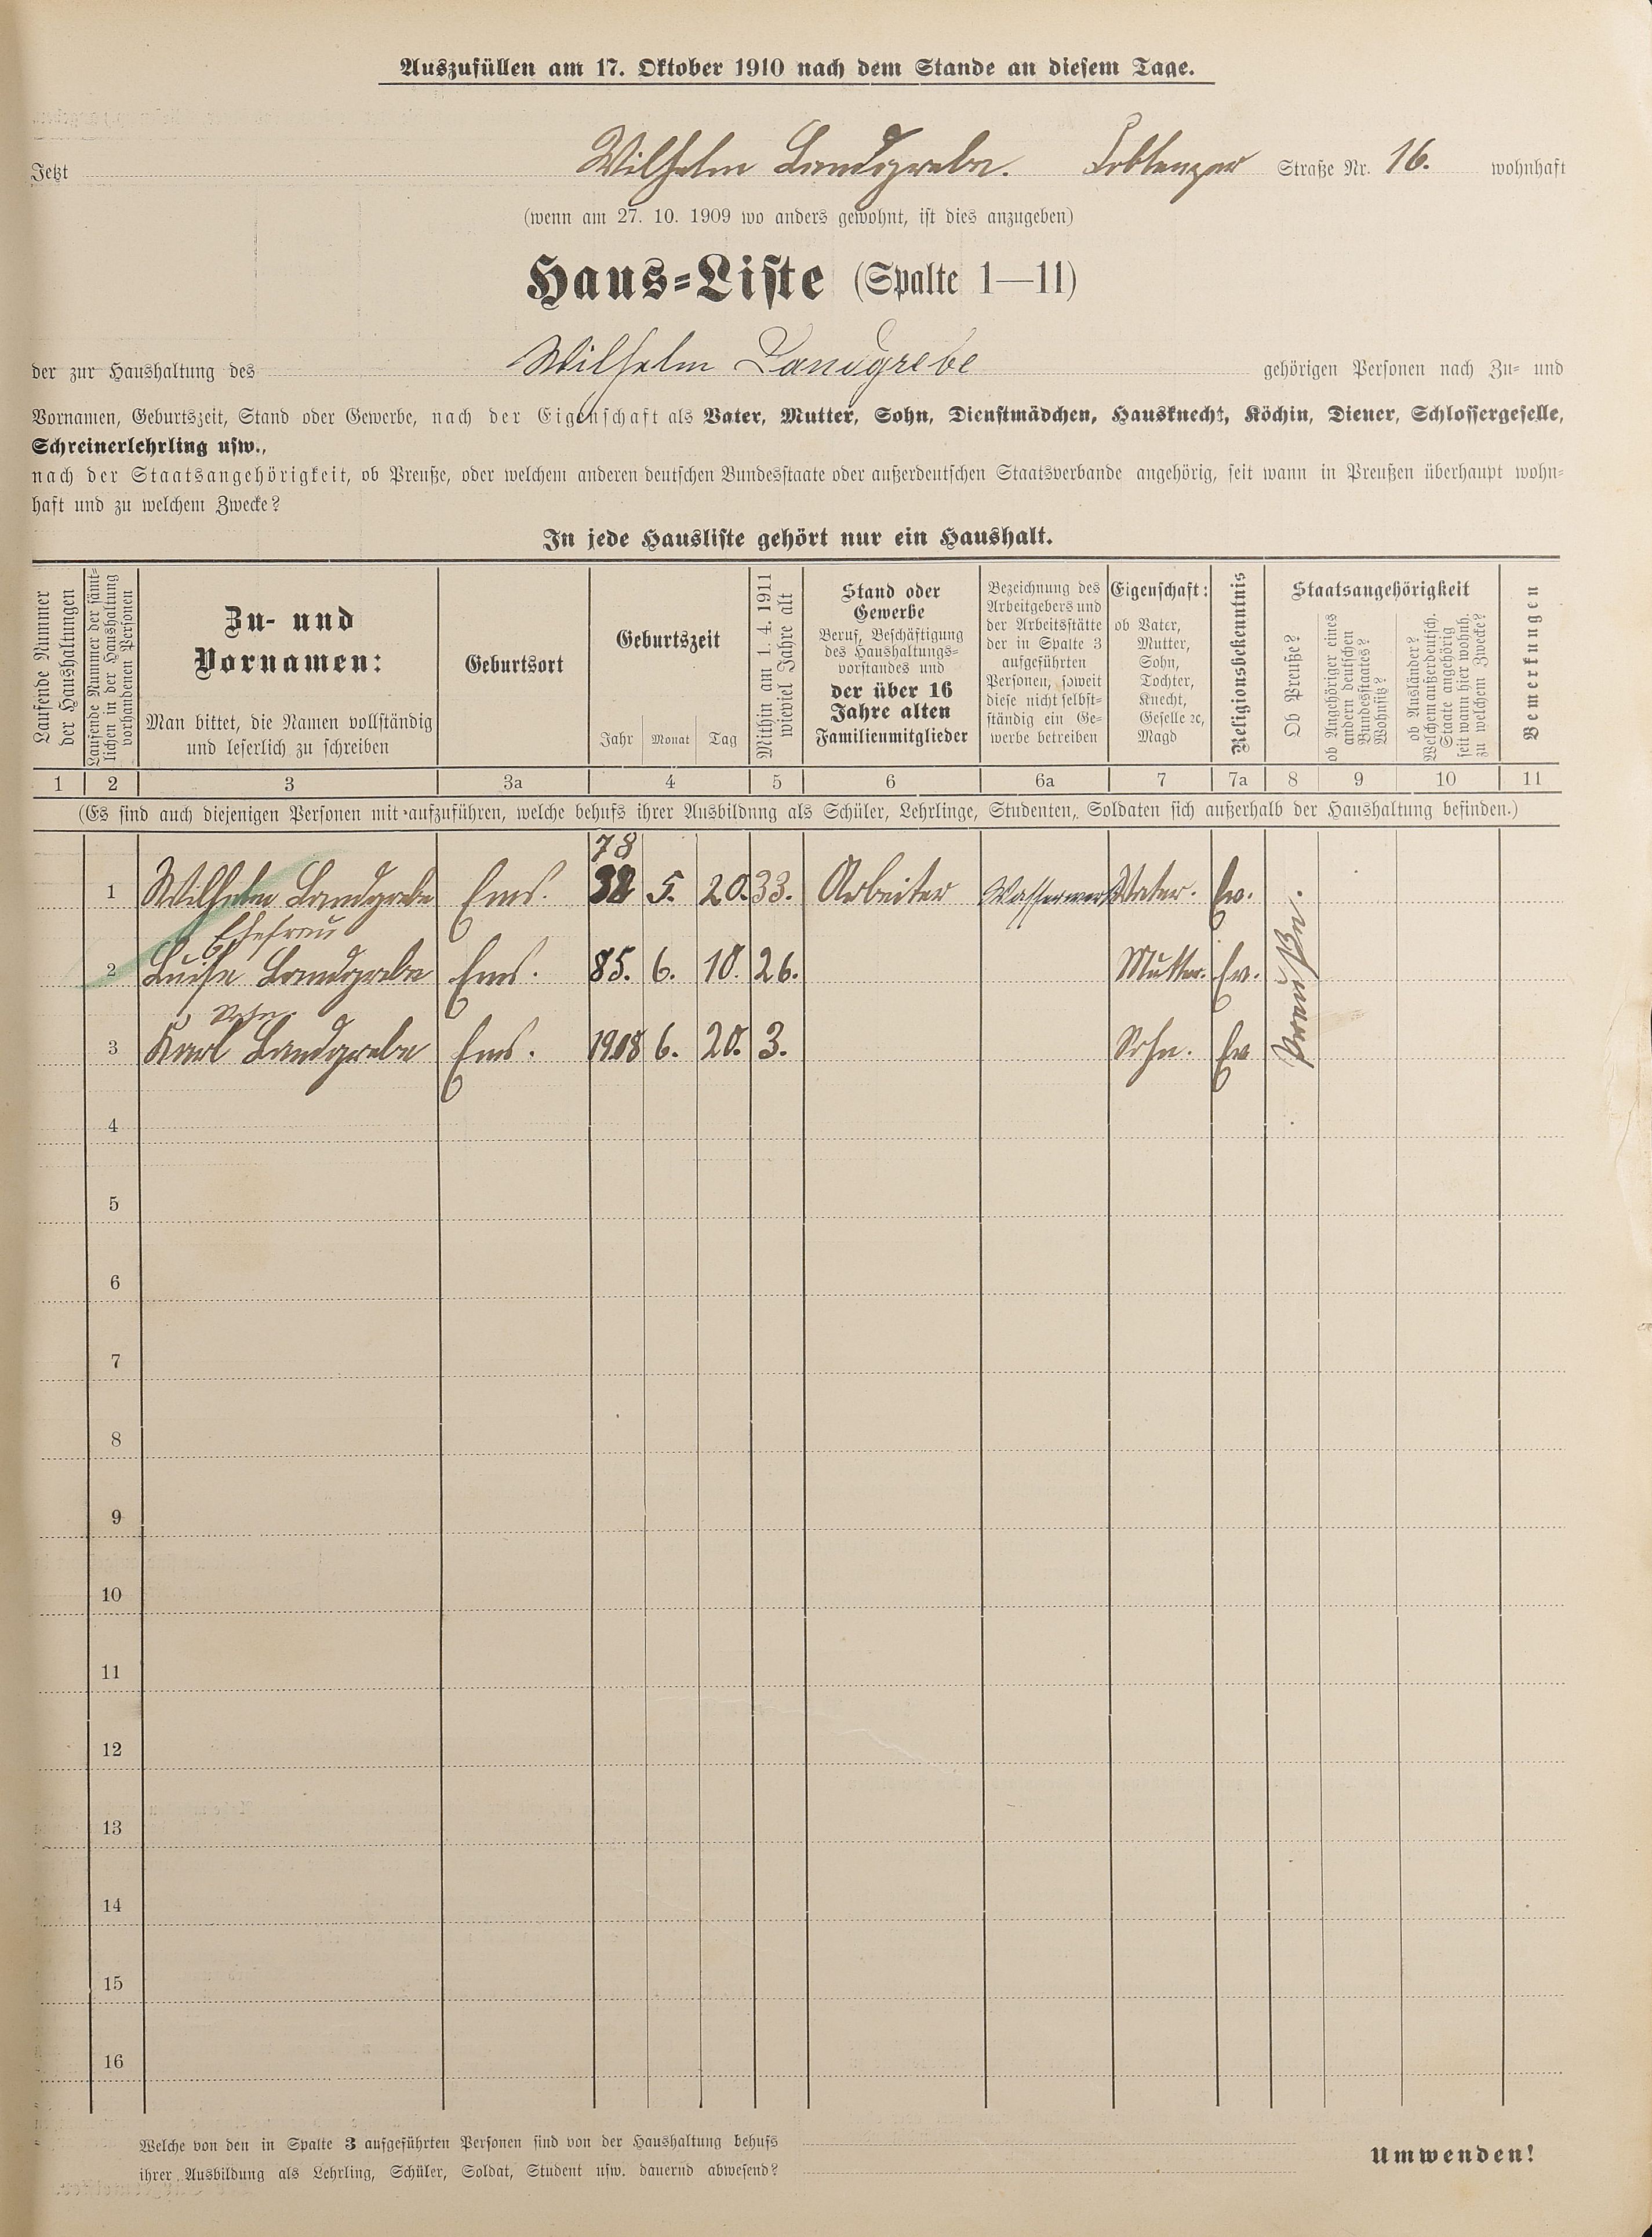 Auszufüllen am 17. Oktober 1910 nach dem Stande an diesem Tage.
Jetzt Wilhelm Landgrebe. Coblenzer Straße Nr. 16. wohnhaft
(wenn am 27. 10. 1909 wo anders gewohnt, ist dies anzugeben)
Haus-Liste (Spalte 1—11)
der zur Haushaltung des Wilhelm Landgrebe gehörigen Personen nach Zu- und
Vornamen, Geburtszeit, Stand oder Gewerbe, nach der Eigenschaft als Vater, Mutter, Sohn, Dienstmädchen, Hausknecht, Köchin, Diener, Schlossergeselle,
Schreinerlehrling usw.,
nach der Staatsangehörigkeit, ob Preuße, oder welchem anderen deutschen Bundesstaate oder außerdeutschen Staatsverbande angehörig, seit wann in Preußen überhaupt wohn-
haft und zu welchem Zwecke?
In jede Hausliste gehört nur ein Haushalt.
Laufende Nummer
der Haushaltungen
Laufende Nummer der sämt-
lichen in der Haushaltung
vorhandenen Personen
Zu- und
Vornamen:
Man bittet, die Namen vollständig
und leserlich zu schreiben
Geburtsort
Geburtszeit
Jahr Monat Tag
Mithin am 1. 4. 1911
wieviel Jahre alt
Stand oder
Gewerbe
Beruf, Beschäftigung
des Haushaltungs-
vorstandes und
der über 16
Jahre alten
Familienmitglieder
Bezeichnung des
Arbeitgebers und
der Arbeitsstätte
der in Spalte 3
aufgeführten
Personen, soweit
diese nicht selbst-
ständig ein Ge-
werbe betreiben
Eigenschaft:
ob Vater,
Mutter,
Sohn,
Tochter,
Knecht,
Geselle ꝛc,
Magd
Religionsbekenntnis
Staatsangehörigkeit
Ob Preuße?
ob Angehöriger eines
andern deutschen
Bundesstaates?
Wohnsitz?
ob Ausländer?
Welchem außerdeutsch.
Staate angehörig
seit wann hier wohnh.
zu welchem Zwecke?
Bemerkungen
1 2 3 3a 4 5 6 6a 7 7a 8 9 10 11
(Es sind auch diejenigen Personen mit aufzuführen, welche behufs ihrer Ausbildung als Schüler, Lehrlinge, Studenten, Soldaten sich außerhalb der Haushaltung befinden.)
78
1 Wilhelm Landgrebe Ems. 5. 20. 33. Arbeiter Wasserwerk Vater. Ev.
Ehefrau
2 Luise Landgrebe Ems. 85. 6. 10. 26. Mutter. Ev.
Sohn
3 Karl Landgrebe Ems. 1908 6. 20. 3. Sohn. Ev
Preuße.
4
5
6
7
8
9
10
11
12
13
14
15
16
Welche von den in Spalte 3 aufgeführten Personen sind von der Haushaltung behufs
ihrer Ausbildung als Lehrling, Schüler, Soldat, Student usw. dauernd abwesend?
Umwenden!